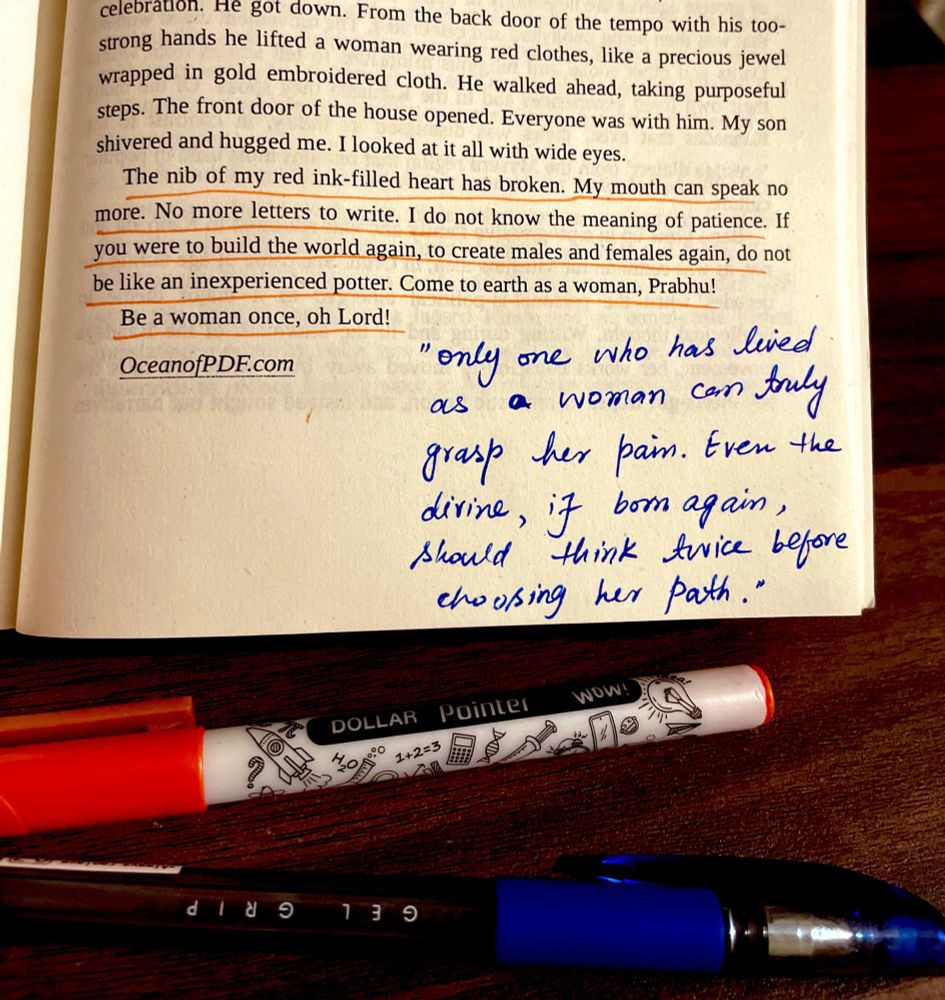 celebration. He got down. From the back door of the tempo with his too-
strong hands he lifted a woman wearing red clothes, like a precious jewel
wrapped in gold embroidered cloth. He walked ahead, taking purposeful
steps. The front door of the house opened. Everyone was with him. My son
shivered and hugged me. I looked at it all with wide eyes.
The nib of my red ink-filled heart has broken. My mouth can speak no
more. No more letters to write. I do not know the meaning of patience. If
you were to build the world again, to create males and females again, do not
be like an inexperienced potter. Come to earth as a woman, Prabhu!
Be a woman once, oh Lord!
OceanofPDF.com
"only one who has lived
as a woman can truly
grasp her pain. Even the
divine, if born again,
should think twice before
choosing her path."
DOLLAR Pointer WOW!
H2O 1+2=3
GEL GRIP